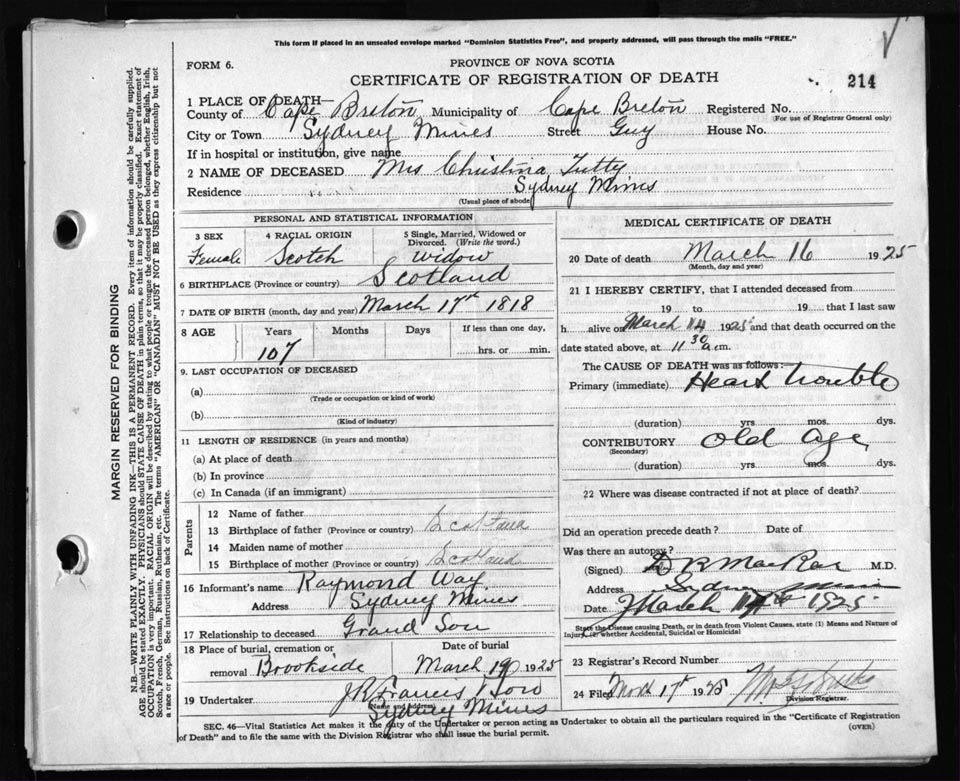 This form if placed in an unsealed envelope marked "Dominion Statistics Free", and properly addressed, will pass through the mails "FREE."
FORM 6.
PROVINCE OF NOVA SCOTIA
CERTIFICATE OF REGISTRATION OF DEATH
214
1 PLACE OF DEATH—
County of Cape Breton Municipality of Cape Breton Registered No.
(For use of Registrar General only)
City or Town Sydney Mines Street Guy House No.
If in hospital or institution, give name
2 NAME OF DECEASED Mrs Christina Tutty
Residence Sydney Mines
(Usual place of abode)
PERSONAL AND STATISTICAL INFORMATION
3 SEX 4 RACIAL ORIGIN 5 Single, Married, Widowed or Divorced. (Write the word.)
Female Scotch Widow
6 BIRTHPLACE (Province or country) Scotland
7 DATE OF BIRTH (month, day and year) March 17th 1818
8 AGE Years Months Days If less than one day,
107 hrs. or min.
9. LAST OCCUPATION OF DECEASED
(a)
(Trade or occupation or kind of work)
(b)
(Kind of industry)
11 LENGTH OF RESIDENCE (in years and months)
(a) At place of death
(b) In province
(c) In Canada (if an immigrant)
Parents
12 Name of father
13 Birthplace of father (Province or country) Scotland
14 Maiden name of mother
15 Birthplace of mother (Province or country) Scotland
16 Informant's name Raymond Way
Address Sydney Mines
17 Relationship to deceased Grand Son
18 Place of burial, cremation or removal Date of burial
Brookside March 19 1925
19 Undertaker J R Frances
(Name and address)
Sydney Mines
MEDICAL CERTIFICATE OF DEATH
20 Date of death March 16 1925
(Month, day and year)
21 I HEREBY CERTIFY, that I attended deceased from
19 to 19 that I last saw
h alive on March 14 1925 and that death occurred on the
date stated above, at 11 30 a.m.
The CAUSE OF DEATH was as follows:
Primary (immediate) Heart trouble
(duration) yrs mos. dys.
CONTRIBUTORY Old Age
(Secondary)
(duration) yrs mos. dys.
22 Where was disease contracted if not at place of death?
Did an operation precede death? Date of
Was there an autopsy?
(Signed) M.D.
Address Sydney Mines
Date March 1925
State the Disease causing Death, or in death from Violent Causes, state (1) Means and Nature of
Injury, (2) whether Accidental, Suicidal or Homicidal
23 Registrar's Record Number
24 Filed 17 1925
Division Registrar.
SEC. 46—Vital Statistics Act makes it the duty of the Undertaker or person acting as Undertaker to obtain all the particulars required in the "Certificate of Registration
of Death" and to file the same with the Division Registrar who shall issue the burial permit.
(OVER)
MARGIN RESERVED FOR BINDING
N.B.—WRITE PLAINLY WITH UNFADING INK—THIS IS A PERMANENT RECORD. Every item of information should be carefully supplied.
AGE should be stated EXACTLY. PHYSICIANS should STATE CAUSE OF DEATH in plain terms, so that it may be properly classified. Exact statement of
OCCUPATION is very important. RACIAL ORIGIN will be described by stating to what people or tongue the deceased person belonged, whether English, Irish,
Scotch, French, German, Russian, Ruthenian, etc. The terms "AMERICAN" OR "CANADIAN" MUST NOT BE USED as they express citizenship but not
a race or people. See instructions on back of Certificate.